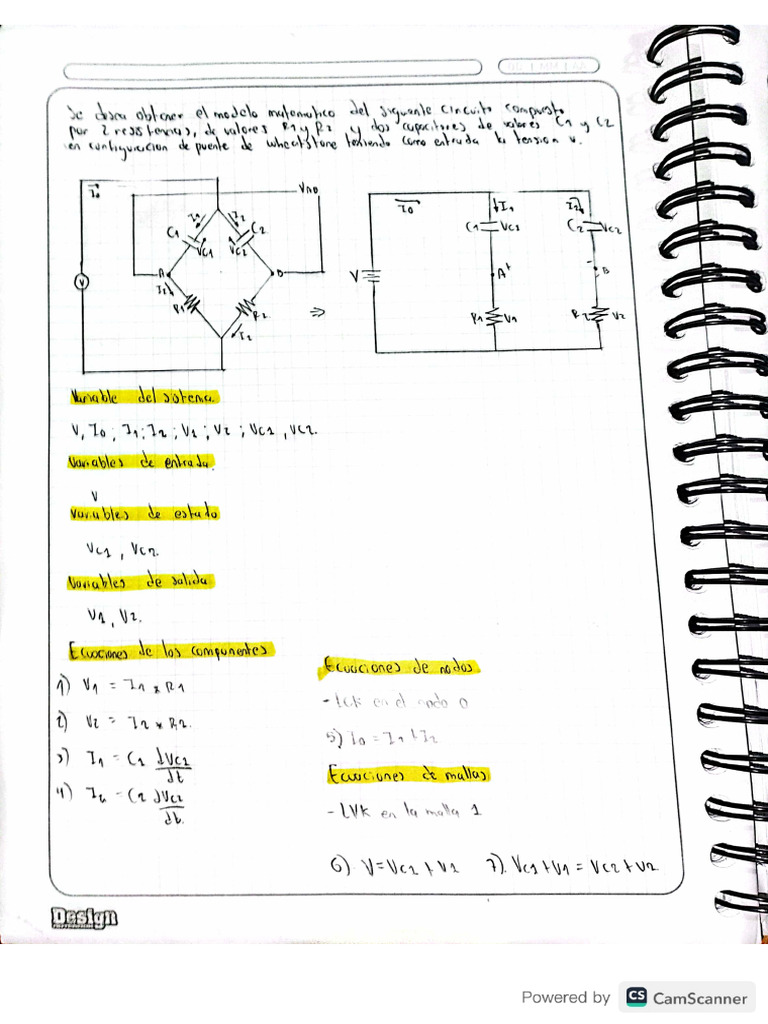 Se desea obtener el modelo matematico del siguente circuito compuesto
por 2 resistencias, de valores R1 y R2 y dos capacitores de valores C1 y C2
en configuracion de puente de wheatstone teniendo como entrada la tension v.
I0
VAB
I1
I2
C1
C2
VC1
VC2
A
B
V
I1
R1
R2
I2
⇒
I0
I1
I2
C1
VC1
C2
VC2
V
A+
-
B
R1
V1
R2
V2
Variable del sistema.
V, I0 ; I1 ; I2 ; V1 ; V2 ; VC1 , VC2.
Variables de entrada.
V
Variables de estado
VC1 , VC2.
Variables de salida
V1, V2.
Ecuaciones de los componentes
1) V1 = I1 * R1
2) V2 = I2 * R2.
3) I1 = C1 dVC1/dt
4) I2 = C2 dVC2/dt.
Ecuaciones de nodos
- LCK en el nodo 0
5) I0 = I1 + I2
Ecuaciones de mallas
- LVK en la malla 1
6) V = VC1 + V1 7). VC1 + V1 = VC2 + V2
Design
Powered by CS CamScanner